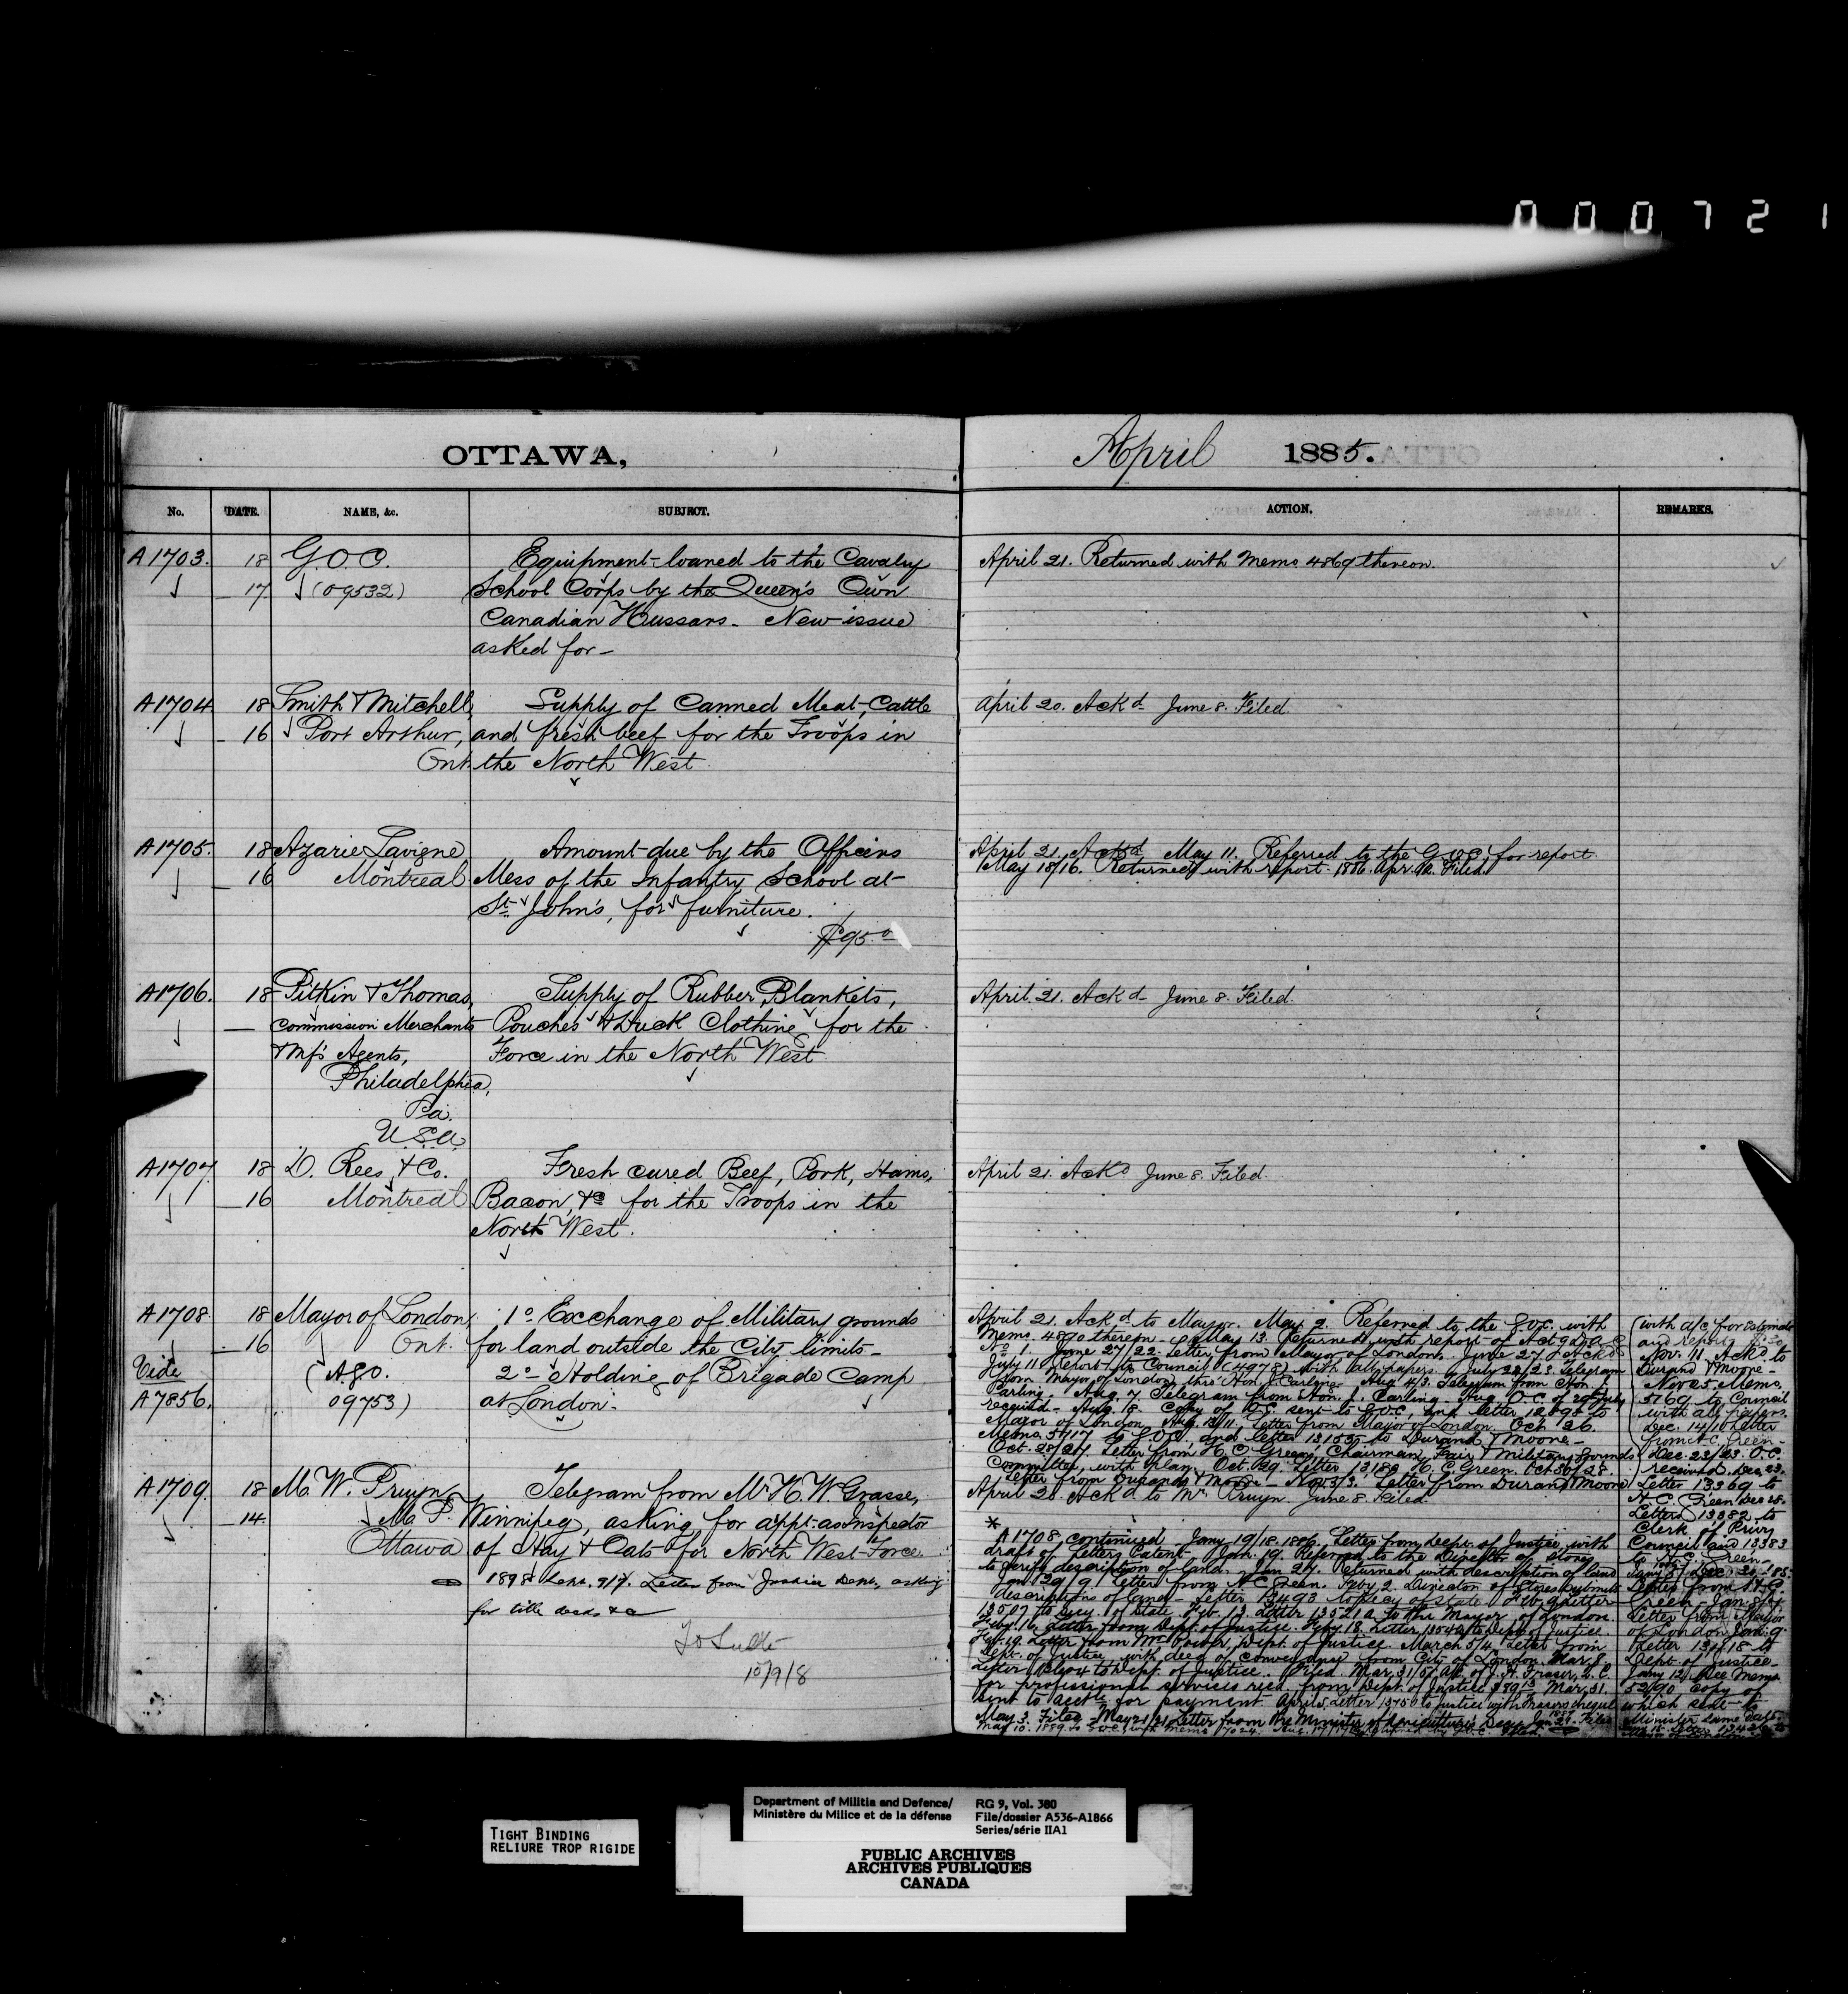 000721
OTTAWA,
No. DATE. NAME, &c. SUBJECT.
A1703. 18 G.O.C. Equipment loaned to the Cavalry
17 (09532) School Corps by the Queen's Own
Canadian Hussars - New issue
asked for -
A1704 18 Smith & Mitchell, Supply of Canned Meat, Cattle
16 Port Arthur, and fresh beef for the Troops in
Ont. the North West
A1705. 18 Azarie Lavigne Amount due by the Officers
16 Montreal Mess of the Infantry School at
St. John's, for furniture.
A1706. 18 Pitkin & Thomas, Supply of Rubber Blankets,
Commission Merchants Pouches & Duck Clothing for the
& Mfs Agents, Force in the North West
Philadelphia,
Pa.
U.S.A.
A1707 18 D. Rees & Co. Fresh cured Beef, Pork, Hams,
16 Montreal Bacon, &c for the Troops in the
North West.
A1708 18 Mayor of London, 1o Exchange of Military grounds
16 Ont. for land outside the City limits -
Vide (AGO. 2o Holding of Brigade Camp
A7856. 09753) at London -
A1709. 18 M. W. Pruyn Telegram from Mr H. W. Grasse,
14. M.P. Winnipeg, asking for appt. as Inspector
Ottawa of Hay & Oats for North West Force
Letter from Justice Dept., asking
for title deeds &c
April 1885.
ACTION. REMARKS.
April 21. Returned with Memo 4869 thereon.
April 20. Ackd June 8. Filed.
April 21. Ackd May 11. Referred to the G.O.C. for report.
May 18/16. Returned with report. 1886. Apr. Filed.
April 21. Ackd June 8. Filed.
April 21. Ackd June 8. Filed.
April 21. Ackd to Mayor. May 2. Referred to the G.O.C. with
Memo. 4890 thereon - May 13. Returned with report of
No 1. June 27/22. Letter from Mayor of London. June 27. Ackd
July 11 Report to Council (4978) with all papers. July 22/23. Telegram
from Mayor of London, thro' Hon. J. Carling. Aug. 4/3. Telegram from Hon. J.
Carling. Aug. 7 Telegram from Hon. J. Carling.
received - Aug. 18. Copy of O.C. sent to G.O.C., and letter to
Mayor of London. Letter from Mayor of London. Oct 26.
Memo. 5717 to G.O.C. and letter 13155 to Durand & Moore -
Oct. 28/27. Letter from A. C. Green, Chairman, Fair & Military Grounds
Committee, with plan. Oct. 29. Letter 13189 A. C. Green. Oct 30/28.
Letter from Durand & Moore - Nov 3/3. Letter from Durand Moore
April 28. Ackd to Mr Pruyn. June 8. Filed.
*
A1708 continued Jany 19/18. 1886. Letter from Dept. of Justice, with
draft of Letters Patent - Jan. 19. Referred to the Director of Stores
to verify description of land. Jan 27. Returned with description of land
Jan 29/9. Letter from A. C. Green. Feby 2. Director of Stores submits
description of land - Letter 13493 to Secy of State
13507 to Secy. of State. Feb. 13. Letter 13521a to the Mayor of London.
Feby. 16. Letter from Dept. of Justice. Feby. 18. Letter to Dept. of Justice.
Feb. 19. Letter from Mr Power, Dept. of Justice. March 5/4. Letter from
Dept. of Justice, with deed of conveyance from City of London. Mar. 8.
Letter to Dept. of Justice. Filed. Mar. 31
for professional services recd. from Dept. of Justice Mar. 31.
sent to Acctt for payment. April 5. Letter 13750 to Justice with Frasers cheque
May 3. Filed - Letter from the Minister of Agriculture's Secy.
(with a/c for Estimate
and report
Nov. 11. Ackd to
Durand & Moore -
Nov 25. Memo.
5769 to Council
with all papers.
Dec. 14/10 Letter
from A. C. Green -
Dec. 23/23. O.C.
received. Dec. 23.
Letter 13369 to
A. C. Green Dec 28.
Letters 13382 to
Clerk of Privy
Council and 13383
to A. C. Green -
Letter from A. C.
Green -
Letter from Mayor
of London Jan. 9.
Letter to
Dept. of Justice -
Jany 12. See Memo.
5290 Copy of
which sent to
Minister same date.
Department of Militia and Defence/
Ministère du Milice et de la défense
RG 9, Vol. 380
File/dossier A536-A1866
Series/série IIA1
TIGHT BINDING
RELIURE TROP RIGIDE
PUBLIC ARCHIVES
ARCHIVES PUBLIQUES
CANADA